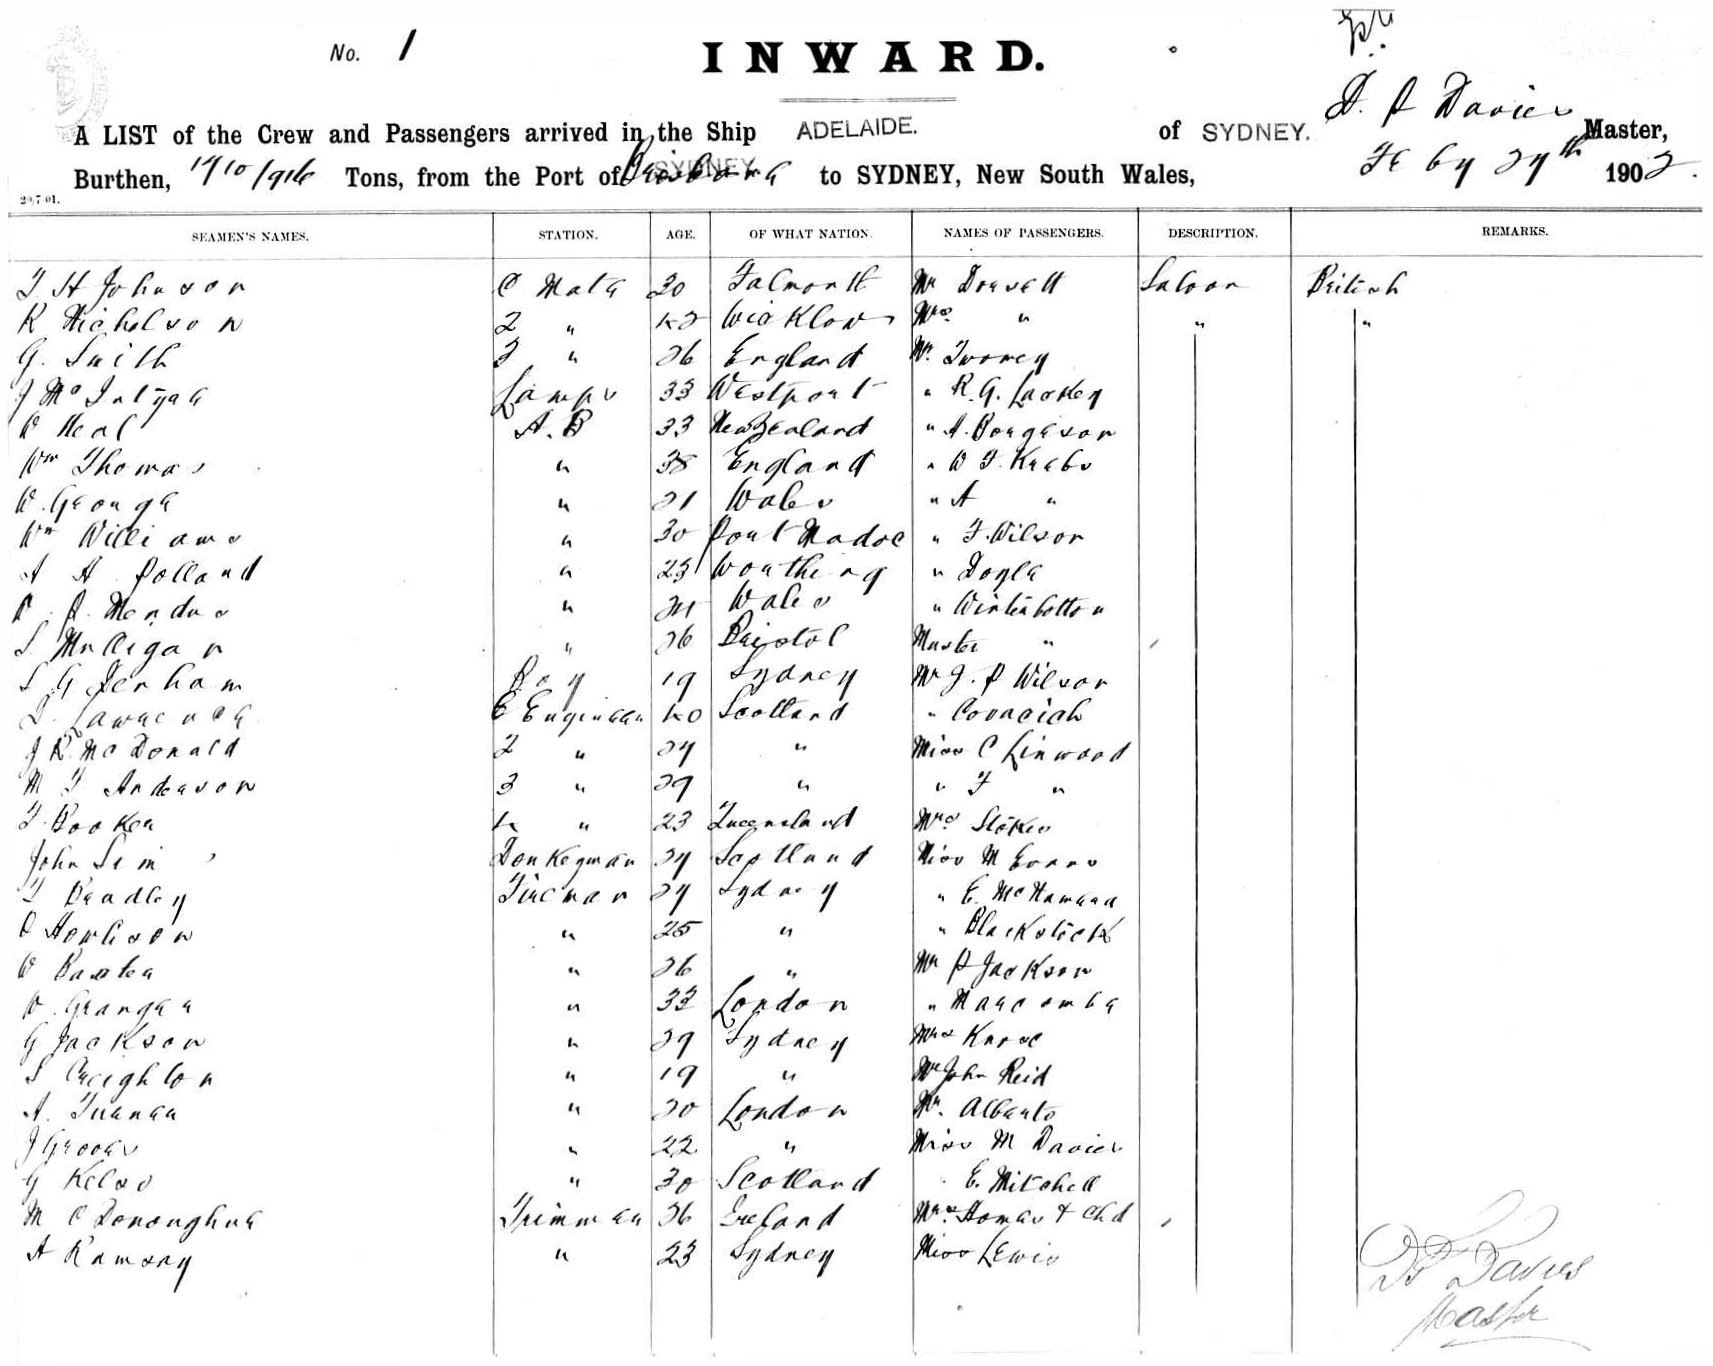 No. 1
INWARD.
D. P Davies
A LIST of the Crew and Passengers arrived in the Ship ADELAIDE. of SYDNEY. Master,
Burthen, Tons, from the Port of Brisbane to SYDNEY, New South Wales, Feby 27th 1902.
20.7.01.
SEAMEN'S NAMES. STATION. AGE. OF WHAT NATION. NAMES OF PASSENGERS. DESCRIPTION. REMARKS.
T H Johnson C Mate 30 Falmouth Mr Dowsett Saloon British
R Nicholson 2 " 42 Wicklow Mrs " " "
G. Smith 3 " 26 England Mr. Twomey
J McIntyre Lamps 33 Westport " R. G. Laskey
Neal A. B 33 New Zealand " A.
Wm Thomas " 38 England " W F. Krebs
W. George " 21 Wales " A "
Wm Williams " 30 Port Madoc " F. Wilson
A H Polland " 23 Worthing " Doyle
P. Mendus " 24 Wales " Winterbottom
S. Mulligan " 26 Bristol Master "
S G Jerham Boy 19 Sydney Mr J. P Wilson
Lawrence C Engineer 40 Scotland " Covacich
J R. McDonald 2 " 27 " Miss C Linwood
M F Anderson 3 " 29 " " F "
T. Booker 4 " 23 Queensland Mrs Stokes
John Sim Donkeyman 27 Scotland Miss M Evans
T Bradley Fireman 27 Sydney " E. McNamara
Howlison " 25 " " Blackstock
W Baxter " 26 " Mr P Jackson
Granger " 33 London " Marcombe
G Jackson " 29 Sydney Mrs Knox
S Creighton " 19 " Mr John Reid
A. Turner " 20 London Mr. Alberts
J Groves " 22 " Miss M Davies
G Kelso " 30 Scotland " E. Mitchell
M O Donoughue Trimmer 26 Ireland Mrs. Homas & Chd
A Ramsay " 23 Sydney Miss Lewis
D P Davies
Master